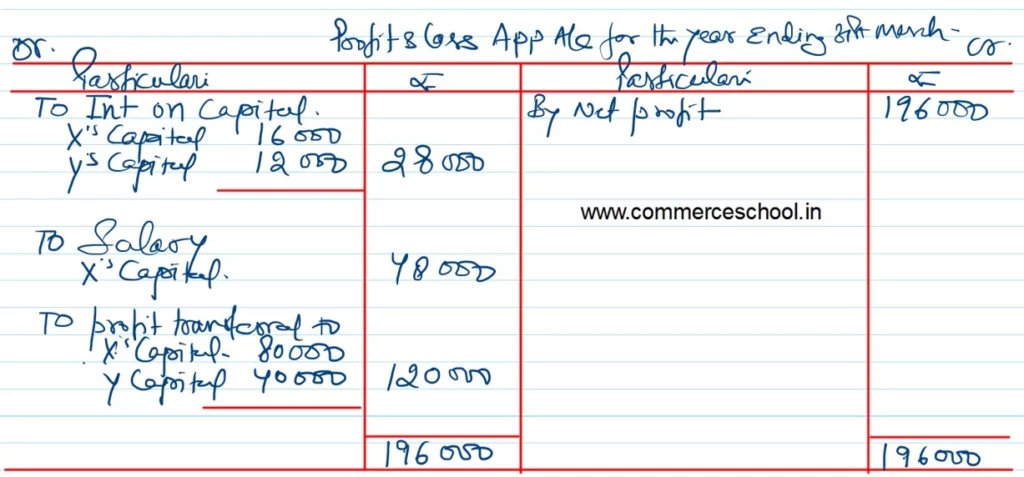 Profit & Loss App A/c for the year Ending 31st March-
Dr. Cr.
Particulars ₹ Particulars ₹
To Int on Capital. By Net profit 196000
X's Capital 16000
Y's Capital 12000 28000
www.commerceschool.in
To Salary
X's Capital. 48000
To profit transferred to
X's Capital- 80000
Y Capital 40000 120000
196000 196000